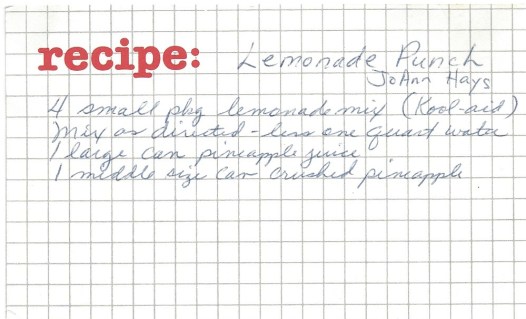 recipe: Lemonade Punch
JoAnn Hays
4 small pkg lemonade mix (Kool-aid)
Mix as directed - less one quart water
1 large can pineapple juice
1 middle size can crushed pineapple